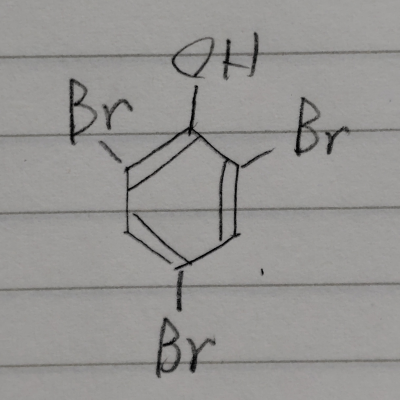 OH
Br Br
Br